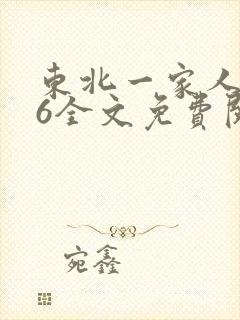 東北一家人
6全文免費閱
宛鑫